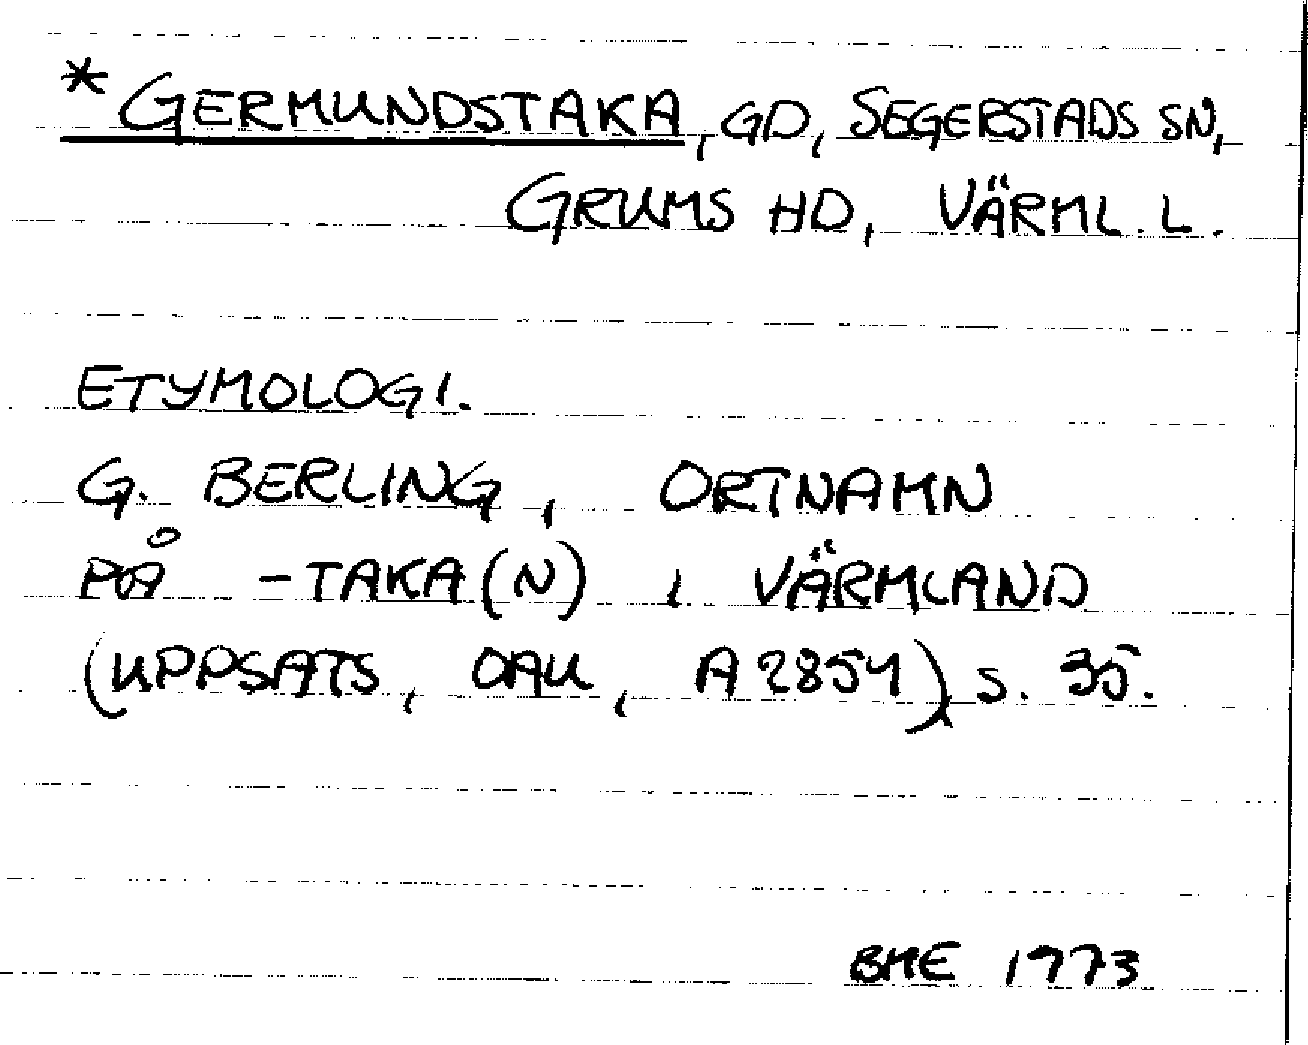 *GERMUNDSTAKA, GD, SEGERSTADS SN,
GRUMS HD, VÄRML. L.
ETYMOLOGI.
G. BERLING, ORTNAMN
PÅ -TAKA(N) I VÄRMLAND
(UPPSATS, OAU, A 2854) S. 35.
BME 1973